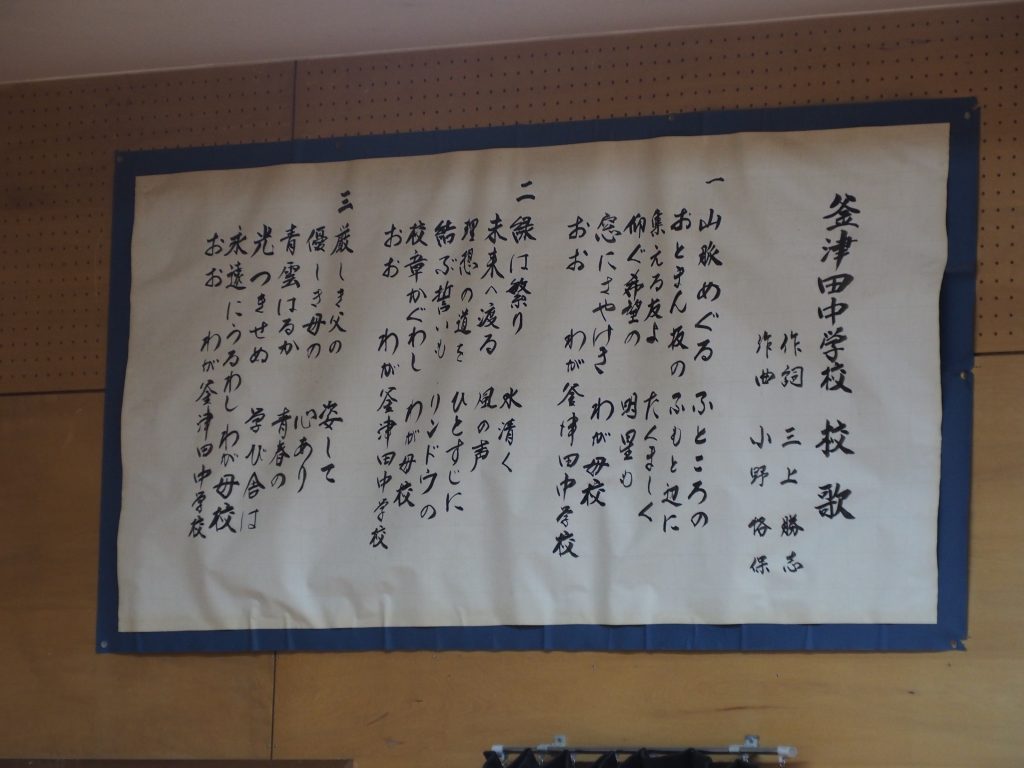 釜津田中学校 校歌
作詞 三上勝志
作曲 小野 保
一 山脈めぐる ふところの
おとまん坂の ふもと辺に
集える友よ たくましく
仰ぐ希望の 明星も
窓にさやけき わが母校
おお わが釜津田中学校
二 緑は繁り 水清く
未来へ渡る 風の声
理想の道を ひとすじに
結ぶ誓いも リンドウの
校章かぐわし わが母校
おお わが釜津田中学校
三 厳しき父の 姿して
優しき母の 心あり
青雲はるか 青春の
光つきせぬ 学び舎は
永遠にうるわし わが母校
おお わが釜津田中学校